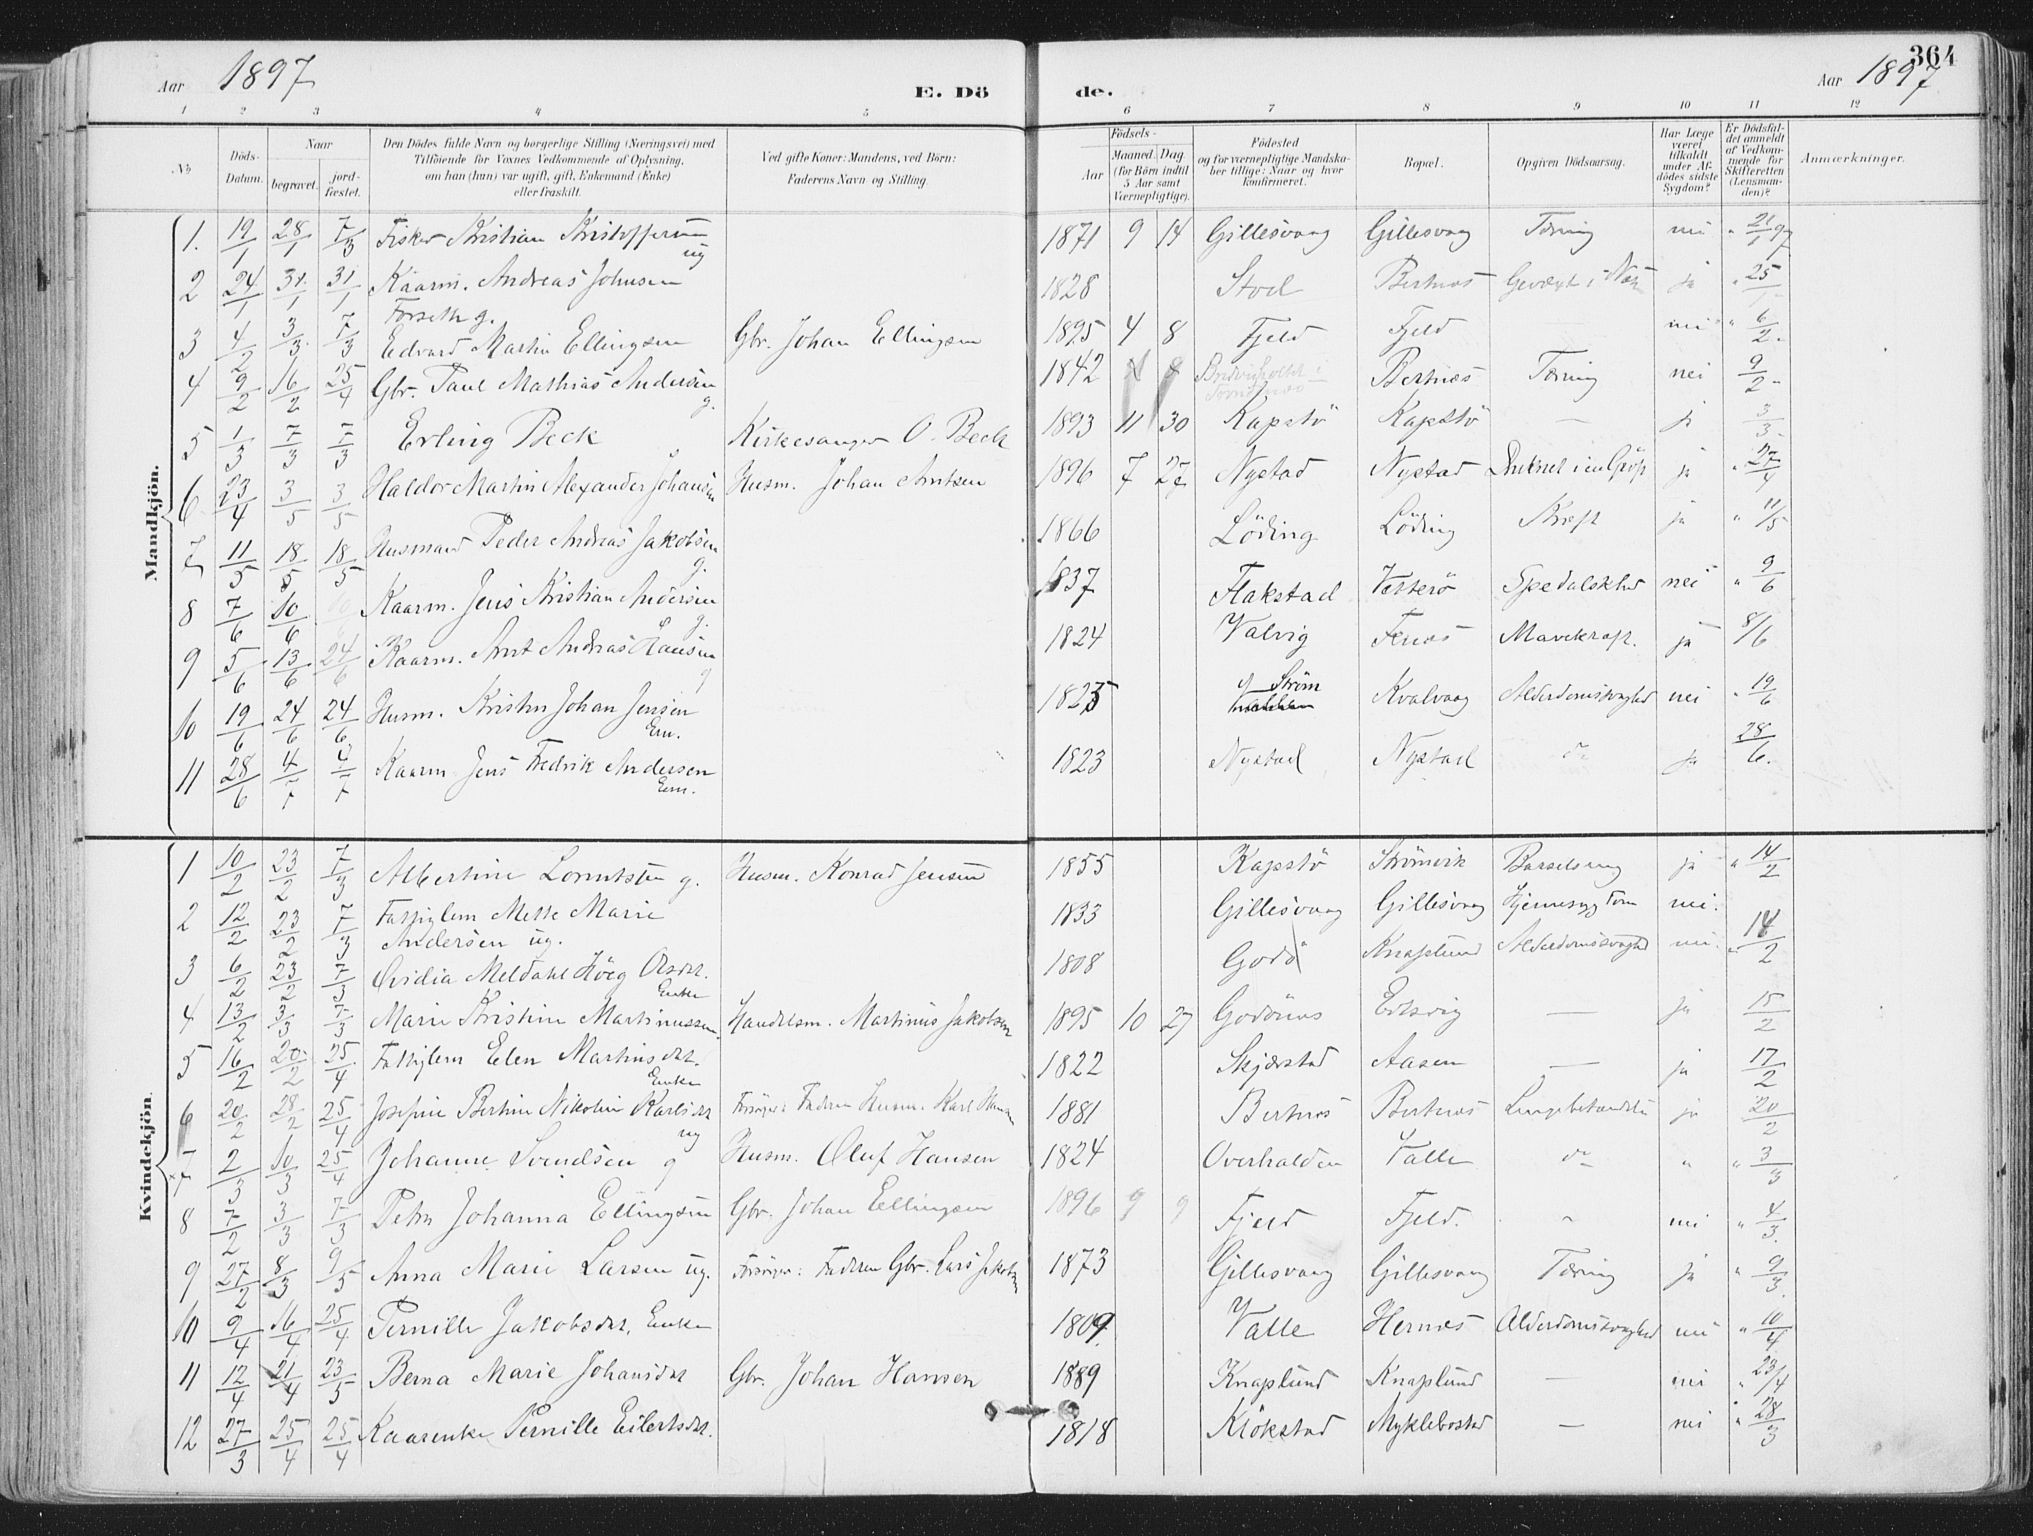 364
Aar 1897 E. Dö de. Aar 1897
1 2 3 4 5 6 7 8 9 10 11 12
№ Döds-Datum. Naar begravet. jord-fæstet. Den Dödes fulde Navn og borgerlige Stilling (Næringsvei) med Tilföiende for Voxnes Vedkommende af Oplysning, om han (hun) var ugift, gift, Enkemand (Enke) eller fraskilt. Ved gifte Koner: Mandens, ved Börn: Faderens Navn og Stilling. Födsels-Aar Maaned. Dag. (for Börn indtil 5 Aar samt Værnepligtige). Födested og for værnepligtige Mandskaber tillige: Naar og hvor konfirmeret. Bopæl. Opgiven Dödsaarsag. Har Læge været tilkaldt under Afdödes sidste Sygdom? Er Dödsfaldet anmeldt af Vedkommende for Skifteretten (Lensmanden)? Anmærkninger.
Mandkjön.
1. 19/1 28/1 7/3 Fisker Kristian Kristoffersen ug 1871 9 14 Gillesvaag Gillesvaag Tæring nei " 21/1 97
2 24/1 31/1 31/1 Kaarm. Andreas Johnsen Forseth g. 1828 Stoel Bertnæs Gevæxt i ja " 25/1
3 4/2 3/3 7/3 Edvard Martin Ellingsen Gbr. Johan Ellingsen 1895 4 8 Fjeld Fjeld — nei " 6/2
4 9/2 16/2 25/4 Gbr. Paul Mathias Andersen g. 1842 Bertnæs Tæring nei 9/2
5 1/3 7/3 7/3 Erling Beck Kirkesanger O. Beck 1893 11 30 Kapstö Kapstö — ja 3/3
6 23/4 3/5 3/5 Haldor Martin Alexander Johansen Husm. Johan Arntsen 1896 7 27 Nystad Nystad Druknet i en Gröft ja " 27/4
7 11/5 18/5 18/5 Husmand Peder Andreas Jakobsen g. 1866 Löding Löding Kræft ja " 11/5
8 7/6 10/6 Kaarm. Jens Kristian Andersen g. 1837 Flakstad Vesterö Spedalskhed nei " 9/6
9 5/6 13/6 24/6 Kaarm. Arnt Andreas Hansen g 1824 Valvig Fenes Mavekræft. ja 8/6
10 19/6 24/6 24/6 Husm. Kristen Johan Jensen Em. 1825 Ström Kvalvaag Alderdomssvaghed nei " 19/6
11 28/6 4/7 4/7 Kaarm. Jens Fredrik Andersen Em. 1823 Nystad Nystad " ja 28/6.
Kvindekjön.
1 10/2 23/2 7/3 Albertine Lorntsen g. Husm. Konrad Jensen 1855 Kapstö Strömvik Barselseng ja " 14/2
2 12/2 23/2 7/3 Fattiglem Mette Marie Andersen ug. 1833 Gillesvaag Gillesvaag Hjernesygdom nei.
3 6/2 23/2 7/3 Ovidia Meldahl Höeg Olsdtr. Enke 1808 Godö Knaplund Alderdomssvaghed nei " 14/2
4 13/2 3/3 7/3 Marie Kristine Martinussen Handelsm. Martinus Jakobsen 1895 10 27 Godönes Edsvig — ja 15/2
5 16/2 20/2 25/4 Fattiglem Elen Martinsdtr. Enke 1822 Skjærstad Aasen — ja 17/2
6 20/2 28/2 25/4 Josefine Bertine Nikoline Karlsdtr ug Forsörger: Faderen Husm. Karl Hansen 1881 Bertnæs Bertnæs Lungebetændelse ja 20/2
7 2/3 10/3 25/4 Johanne Svendsen g Husm. Oluf Hansen 1824 Overhalden Valle do " " 3/3
8 7/2 3/3 7/3 Petra Johanna Ellingsen Gbr. Johan Ellingsen 1896 9 9 Fjeld Fjeld. " nei " 4/3.
9 27/2 8/3 9/5 Anna Marie Larsen ug. Forsörger: Faderen Gbr. Lars Jakobsen 1873 Gillesvaag Gillesvaag Tæring ja " 9/3
10 9/4 16/4 25/4 Pernille Jakobsdtr. Enke 1809. Valle Hernes Alderdomssvaghed nei " 10/4
11 12/4 21/4 23/5 Berna Marie Johansdtr Gbr. Johan Hansen 1889 Knaplund Knaplund — nei " 23/4
12 27/3 25/4 25/4 Kaarenke Pernille Eilertsdtr. 1818 Klökstad Myklebostad — nei " 28/3